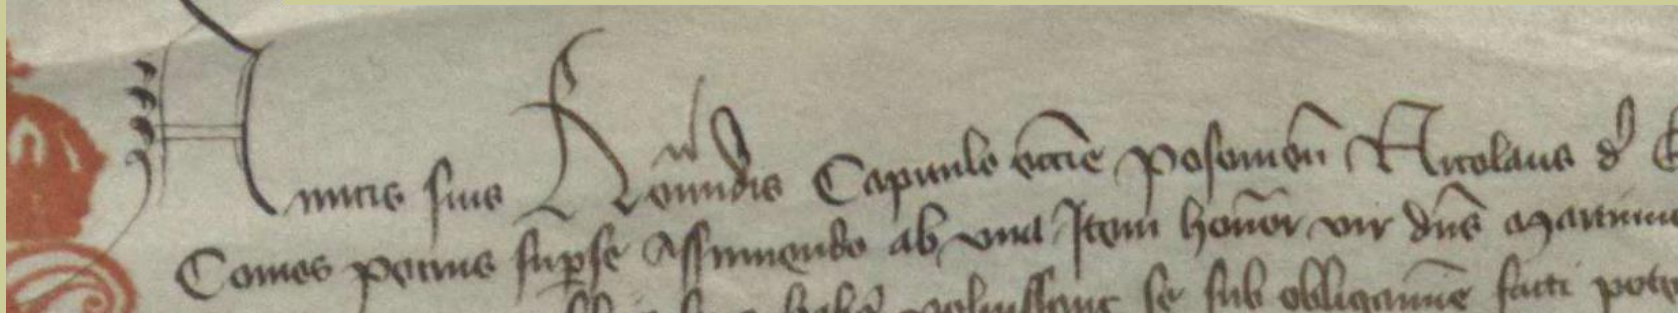 Amicis suis Reverendis Capitulo eccie Posonien Nicolaus de
Comes petrus sup se Assumendo ab vna Item honor vir dns martinus
se sub obligamine facti